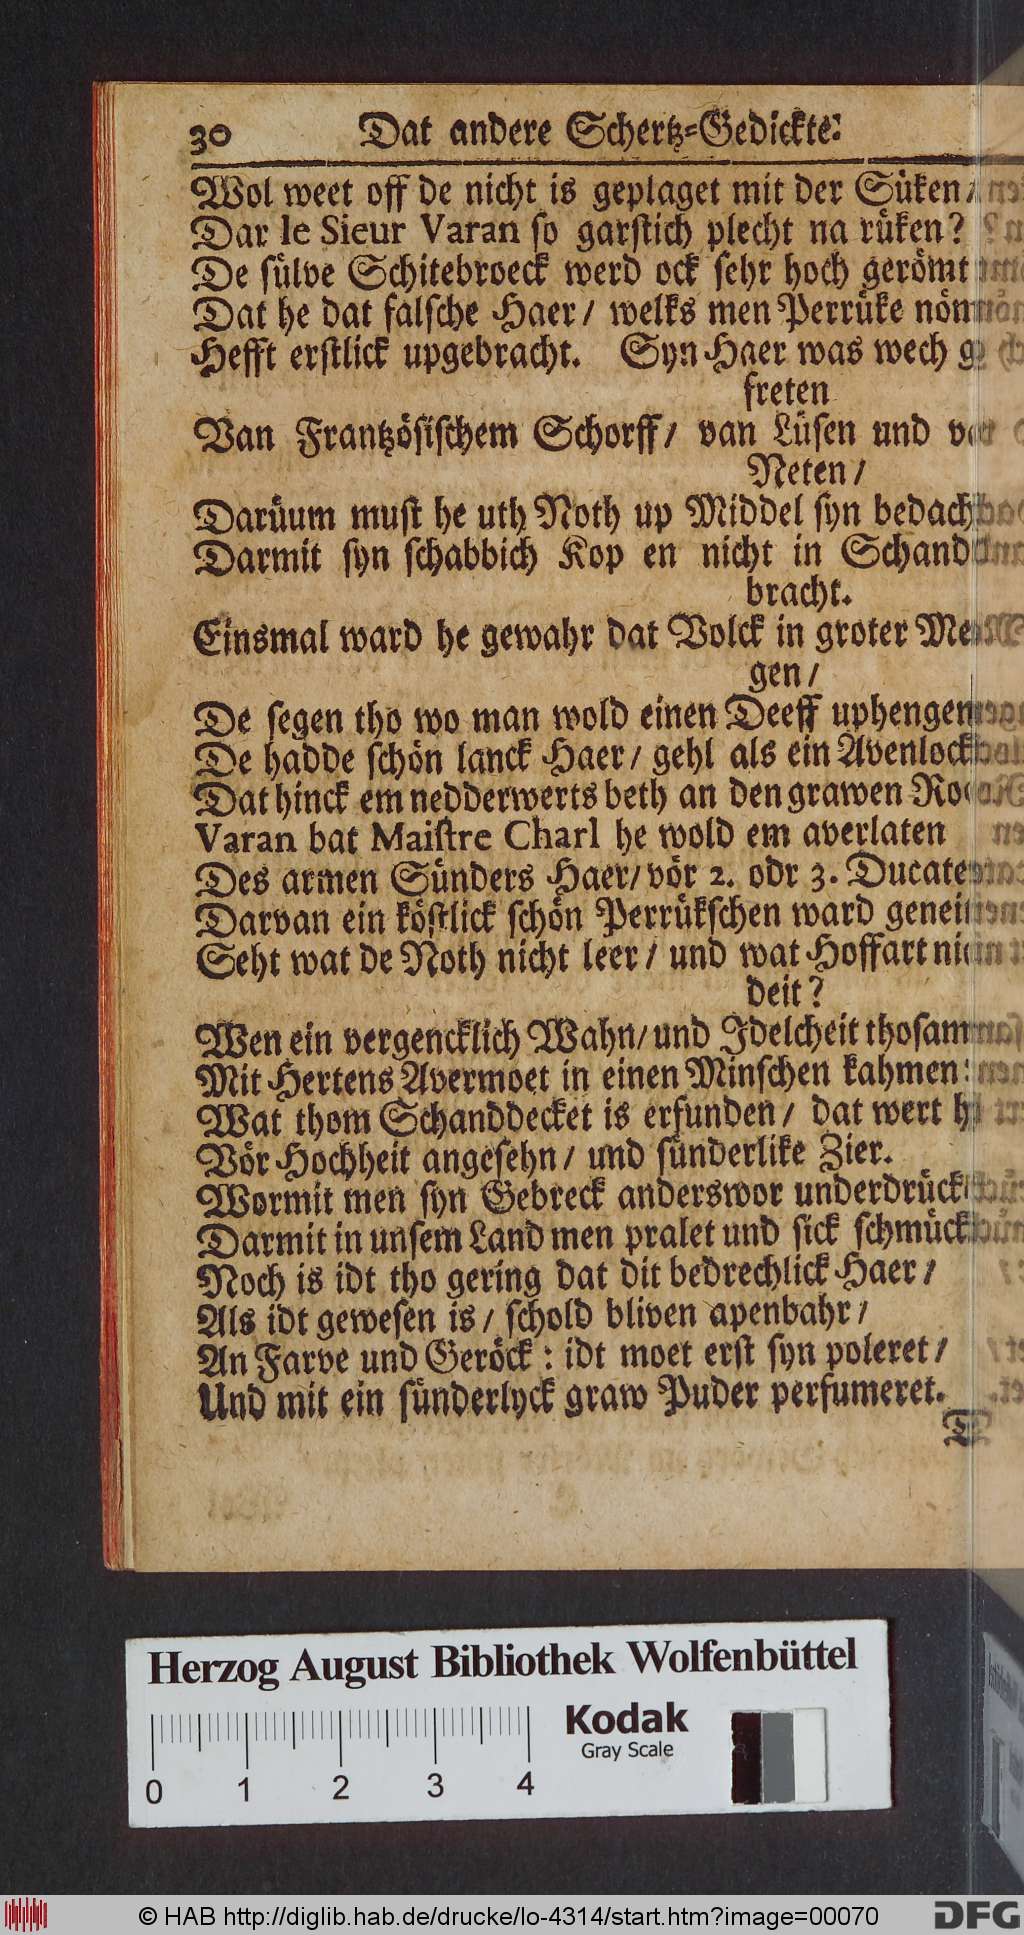 30 Dat andere Schertz-Gedickte.
Wol weet off de nicht is geplaget mit der Süken/
Dar le Sieur Varan so garstich plecht na rüken?
De sülve Schitebroeck werd ock sehr hoch gerömt
Dat he dat falsche Haer/ welks men Perrüke nöm
Hefft erstlick upgebracht. Syn Haer was wech g
freten
Van Frantzösischem Schorff/ van Lüsen und v
Neten/
Darüum must he uth Noth up Middel syn bedach
Darmit syn schabbich Kop en nicht in Schand
bracht.
Einsmal ward he gewahr dat Volck in groter Me
gen/
De segen tho wo man wold einen Deeff uphengen
De hadde schön lanck Haer/ gehl als ein Avenlock
Dat hinck em nedderwerts beth an den grawen Ro
Varan bat Maistre Charl he wold em averlaten
Des armen Sünders Haer/ vör 2. odr 3. Ducate
Darvan ein köstlick schön Perrükschen ward genei
Seht wat de Noth nicht leer/ und wat Hoffart ni
deit?
Wen ein vergencklich Wahn/ und Idelcheit thosam
Mit Hertens Avermoet in einen Minschen kahmen:
Wat thom Schanddecket is erfunden/ dat wert h
Vör Hochheit angesehn/ und sünderlike Zier.
Wormit men syn Gebreck anderswor underdrück
Darmit in unsem Land men pralet und sick schmück
Noch is idt tho gering dat dit bedrechlick Haer/
Als idt gewesen is/ schold bliven apenbahr/
An Farve und Geröck: idt moet erst syn poleret/
Und mit ein sünderlyck graw Puder perfumeret.
Herzog August Bibliothek Wolfenbüttel
Kodak
Gray Scale
0 1 2 3 4
© HAB http://diglib.hab.de/drucke/lo-4314/start.htm?image=00070
DFG